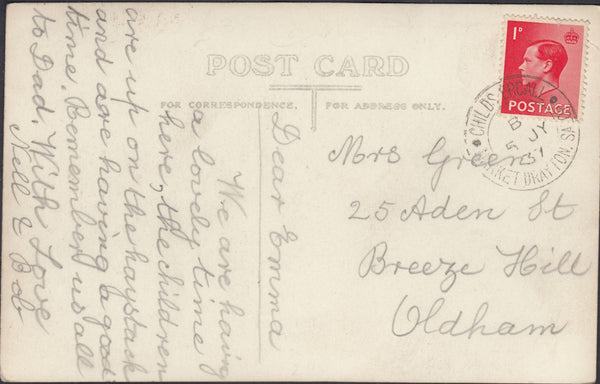 POST CARD
FOR CORRESPONDENCE.
FOR ADDRESS ONLY.
1D
POSTAGE
CHILDS ERCALL
MARKET DRAYTON, SALOP
B
5 JY
37
Dear Emma
We are having
a lovely time
here, the children
are up on the haystack
and are having a good
time. Remember us all
to Dad. With Love
Nell & Bob
Mrs Green
25 Aden St
Breeze Hill
Oldham